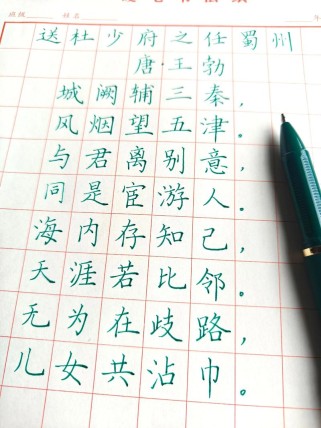 班级 姓名
送杜少府之任蜀州
唐·王勃
城阙辅三秦，
风烟望五津。
与君离别意，
同是宦游人。
海内存知己，
天涯若比邻。
无为在歧路，
儿女共沾巾。